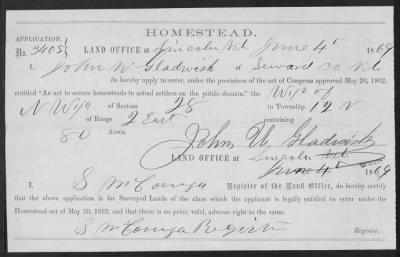 HOMESTEAD.
APPLICATION.
No. 3405 LAND OFFICE at Lincoln Neb June 4th 1869
I, John W Gladwish of Seward Co Neb
do hereby apply to enter, under the provisions of the act of Congress approved May 20, 1862.
entitled "An act to secure homesteads to actual settlers on the public domain," the W 1/2 of
N W 1/4 of Section 28 in Township 12 N
of Range 2 East containing
80 Acres.
John W Gladwish
LAND OFFICE at Lincoln Neb
June 4th 1869
I, S McConiga Register of the Land Office, do hereby certify
that the above application is for Surveyed Lands of the class which the applicant is legally entitled to enter under the
Homestead act of May 20, 1862, and that there is no prior, valid, adverse right to the same.
S McConiga Register
Register.